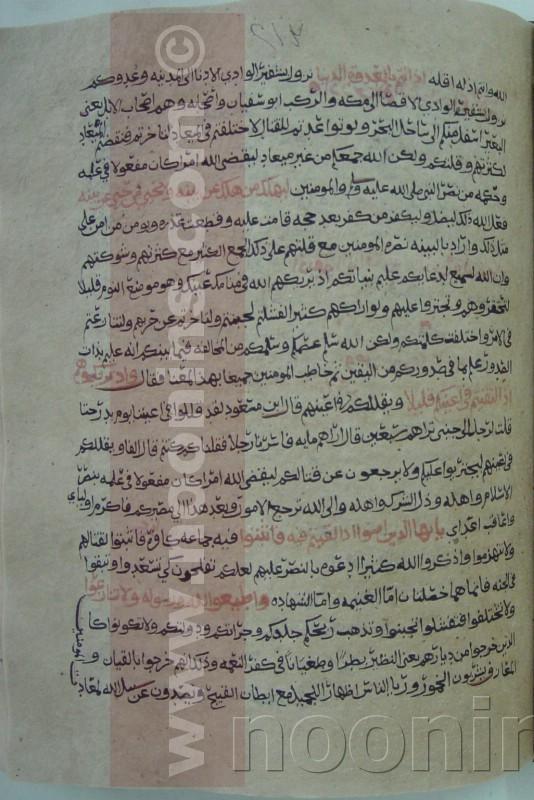 الله وانتم اذلة اقلة اذ انتم بالعدوة الدنيا نزول شفير الوادي الادنا الى المدينة وعدوكم
نزول بشفير الوادي الاقصا الى مكة والركب ابو سفيان واصحابه وهم اصحاب الابل يعني
العير اسفل منكم الى ساحل البحر ولو تواعدتم للقتال لاختلفتم في الميعاد
لكثرتهم وقلتكم ولكن الله جمعكم من غير ميعاد ليقضي الله امرا كان مفعولا في علمه
وحكمه من نصر النبي صلى الله عليه والمومنين ليهلك من هلك عن بينة ويحيى من حي عن بينة
فعل الله ذلك ليضل وليكفر من كفر بعد حجة قامت عليه ويومن من امن على
مثل ذلك واراد بالبينة نصرة المومنين مع قلتهم على ذلك الجمع الكثير مع كثرتهم وشوكتهم
وان الله لسميع لدعايكم عليم بنياتكم اذ يريكهم الله في منامك عينك وهو موضع النوم قليلا
لتحقروهم وتجتروا عليهم ولو اراكهم كثيرا لفشلتم لجبنتم وتاخرتم عن حربهم ولتنازعتم
في الامر واختلفت كلمتكم ولكن الله سلم عصمكم وسلمكم من المخالفة فيما بينكم انه عليم بذات
الصدور عليم بما في صدوركم من اليقين ثم خاطب المومنين جميعا بهذا المعنا فقال واذ يريكموهم
اذ التقيتم في اعينكم قليلا ويقللكم في اعينهم قال ابن مسعود لقد قللوا في اعيننا يوم بدر حتا
قلت لرجل الى جنبي تراهم سبعين قال اراهم ماية فاسرنا رجلا فقلنا كم كنتم قال الفا ويقللكم
في اعينهم ليجتروا عليكم ولا يرجعون عن قتالكم ليقضي الله امرا كان مفعولا في علمه بنصر
الاسلام واهله وذل الشرك واهله والى الله ترجع الامور وبعد هذا الي مصيركم فاكرم اوليائي
واعاقب اعدائي يايها الذين امنوا اذا لقيتم فية فاثبتوا فية جماعة كافرة فاثبتوا لقتالهم
ولا تنهزموا واذكروا الله كثيرا ادعوه بالنصر عليهم لعلكم تفلحون كي تسعدوا وتبقوا
في الجنة فانما هما خصلتان اما الغنيمة واما الشهادة واطيعوا الله ورسوله ولا تنازعوا
ولا تختلفوا فتفشلوا تجبنوا وتذهب ريحكم جلدكم وجراتكم ودولتكم ولا تكونوا كا
الذين خرجوا من ديارهم يعني النفير بطرا وطغيانا في كفر النعمة وذلك انهم خرجوا بالقيان و
المعازف يشربون الخمور وريا الناس اظهارا للجميل مع ابطان القبيح ويصدون عن سبيل الله لمعاداة
المومنين
www.noormags.com ©
noonir